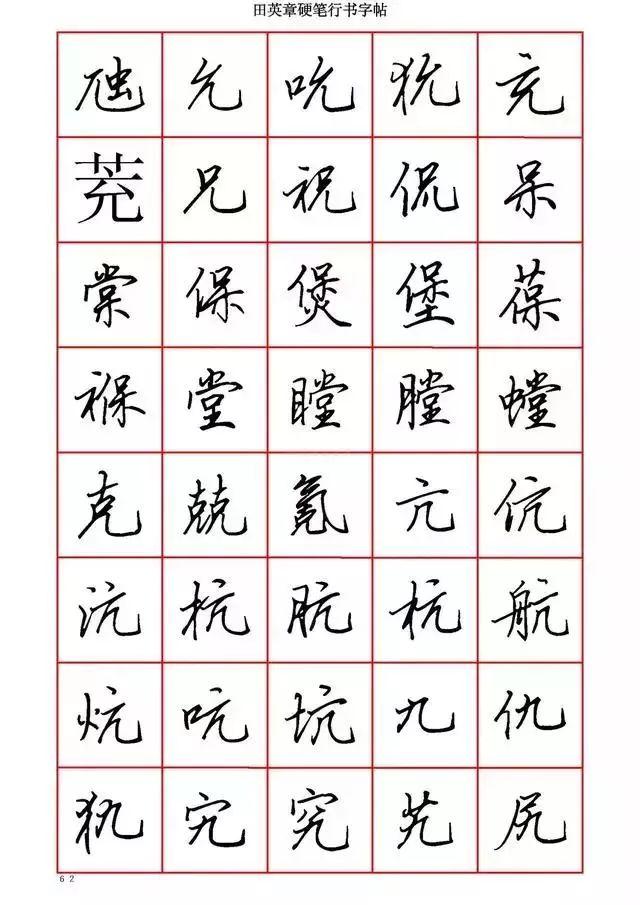 田英章硬笔行书字帖
虺 允 吮 狁 充
茺 兄 祝 侃 呆
棠 保 煲 堡 葆
褓 堂 瞠 膛 螳
克 兢 氪 亢 伉
沆 抗 肮 杭 航
炕 吭 坑 九 仇
犰 宄 究 艽 尻
62